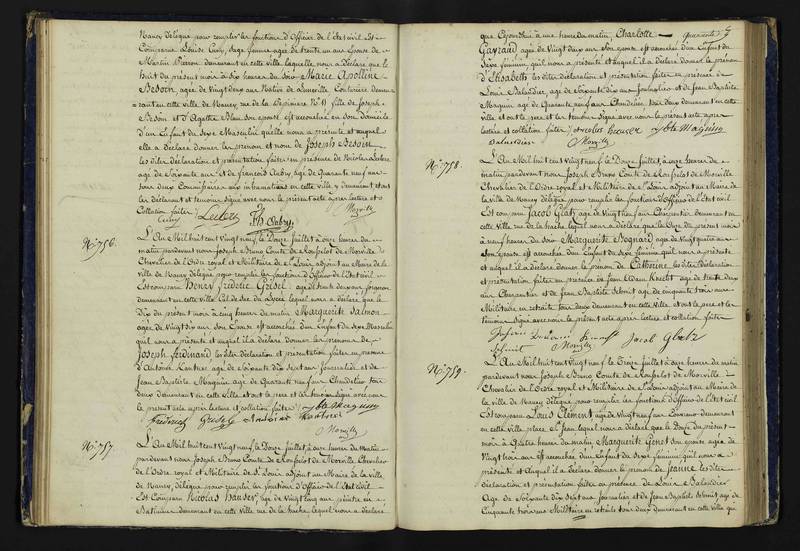 Nancy délégué pour remplir les fonctions d'Officier de l'état civil Est
Comparue Louise Cuny, sage femme agée de trente un ans Epouse de
Martin Pierron demeurant en cette ville laquelle nous a déclaré que le
huit du présent mois à dix heures du soir Marie Apolline
Besson, agée de Vingt deux ans Native de Luneville Couturière demeu-
=rant en cette ville de Nancy rue de la Pépinière N° fille de Joseph
Besson et d'Agathe Blan son épouse est accouchée en son domicile
d'un Enfant du Sexe Masculin qu'elle nous a présenté et auquel
elle a déclaré donner les prénom et nom de Joseph Besson
les dites déclaration et présentation faites en présence de Nicolas
agé de Soixante ans et de François Aubry agé de Quarante neuf ans
tous deux en cette ville et ont
la déclarant et témoins signé avec nous le présent acte après lecture et
Collation faites
Cuny Aubry Morville
N° 756.
L'An Mil huit cent Vingt neuf le Douze Juillet, à onze heures du ma-
tin pardevant nous Joseph Bruno Comte de Rouselot de Morville
Chevalier de l'Ordre royal et Militaire de St Louis adjoint au Maire de la
ville de Nancy délégué pour remplir les fonctions d'Officier de l'état civil
Est comparu Henry Frédéric Grisel agé de trente deux ans
demeurant en cette ville lequel nous a déclaré que le
Dix du présent mois à cinq heures du matin Marguerite Salmon
agée de Vingt six ans son Epouse est accouchée d'un Enfant du Sexe Masculin
qu'il nous a présenté et auquel il a déclaré donner les prénoms de
Joseph Ferdinand les dites déclaration et présentation faites en présence
d'Antoine agé de Soixante dix sept ans Journalier et de
Jean Baptiste Marguin agé de Quarante neuf ans Chaudelier tous
deux demeurant en cette ville et ont le père et les témoins signé avec nous
le présent acte après lecture et collation faites
Frederic Grisel
Morville
N° 757.
L'An Mil huit cent Vingt neuf le Douze Juillet, à onze heures du matin
pardevant nous Joseph Bruno Comte de Rouselot de Morville Chevalier
de l'Ordre royal et Militaire de St Louis adjoint au Maire de la ville
de Nancy, délégué pour remplir les fonctions d'Officier de l'état civil
Est Comparu Nicolas Hauser, agé de Vingt cinq ans peintre en
Batiment demeurant en cette ville rue de la hache lequel nous a déclaré
que Cejourd'hui à une heure du matin, Charlotte
Gavraud agée de Vingt deux ans son épouse est accouchée d'un Enfant du
Sexe féminin qu'il nous a présenté et auquel il a déclaré donner le prénom
d'Elisabeth les dites déclaration et présentation faites en présence de
Louis Balandier agé de Soixante dix ans Journalier et de Jean Baptiste
Marguin agé de Quarante neuf ans Chaudelier tous deux demeurant en cette
ville et ont le père et les témoins signé avec nous le présent acte après
lecture et collation faites
Morville
N° 758.
L'An Mil huit cent Vingt neuf le Douze Juillet, à onze heures du
matin pardevant nous Joseph Bruno Comte de Rouselot de Morville
Chevalier de l'Ordre royal et Militaire de St Louis adjoint au Maire de
la ville de Nancy délégué pour remplir les fonctions d'Officier de l'état civil
Est comparu Jacob Glatz agé de Vingt neuf ans Charpentier demeurant en
cette Ville rue de la hache lequel nous a déclaré que le Onze du présent mois
à neuf heures du soir Marguerite Bognard agée de Vingt quatre ans
Son épouse est accouchée d'un Enfant du Sexe féminin qu'il nous a présenté
et auquel il a déclaré donner le prénom de Catherine les dites déclaration
et présentation faites en présence de Jean Adam Knecht agé de trente deux
ans Charpentier et de Jean Baptiste Schmit agé de Cinquante trois ans
Militaire en retraite tous deux demeurant en cette Ville et ont le père et les
témoins signé avec nous le présent acte après lecture et collation faites
Schmit Morville Jacob Glatz
N° 759.
L'An Mil huit cent Vingt neuf le Treize Juillet, à onze heures du matin
pardevant nous Joseph Bruno Comte de Rouselot de Morville
Chevalier de l'Ordre royal et Militaire de St Louis adjoint au Maire de
la ville de Nancy délégué pour remplir les fonctions d'Officier de l'état civil
Est comparu Louis Clément agé de Vingt neuf ans demeurant en
cette Ville place St Jean lequel nous a déclaré que le Douze du présent
mois à Quatre heures du matin Marguerite Genot son épouse agée de
Vingt trois ans est accouchée d'un Enfant du Sexe féminin qu'il nous a
présenté et Auquel il a déclaré donner le prénom de Jeanne les dites
déclaration et présentation faites en présence de Louis Balandier
Agé de Soixante dix sept ans Journalier et de Jean Baptiste Schmit agé de
Cinquante trois ans Militaire en retraite tous deux demeurant en cette ville qui